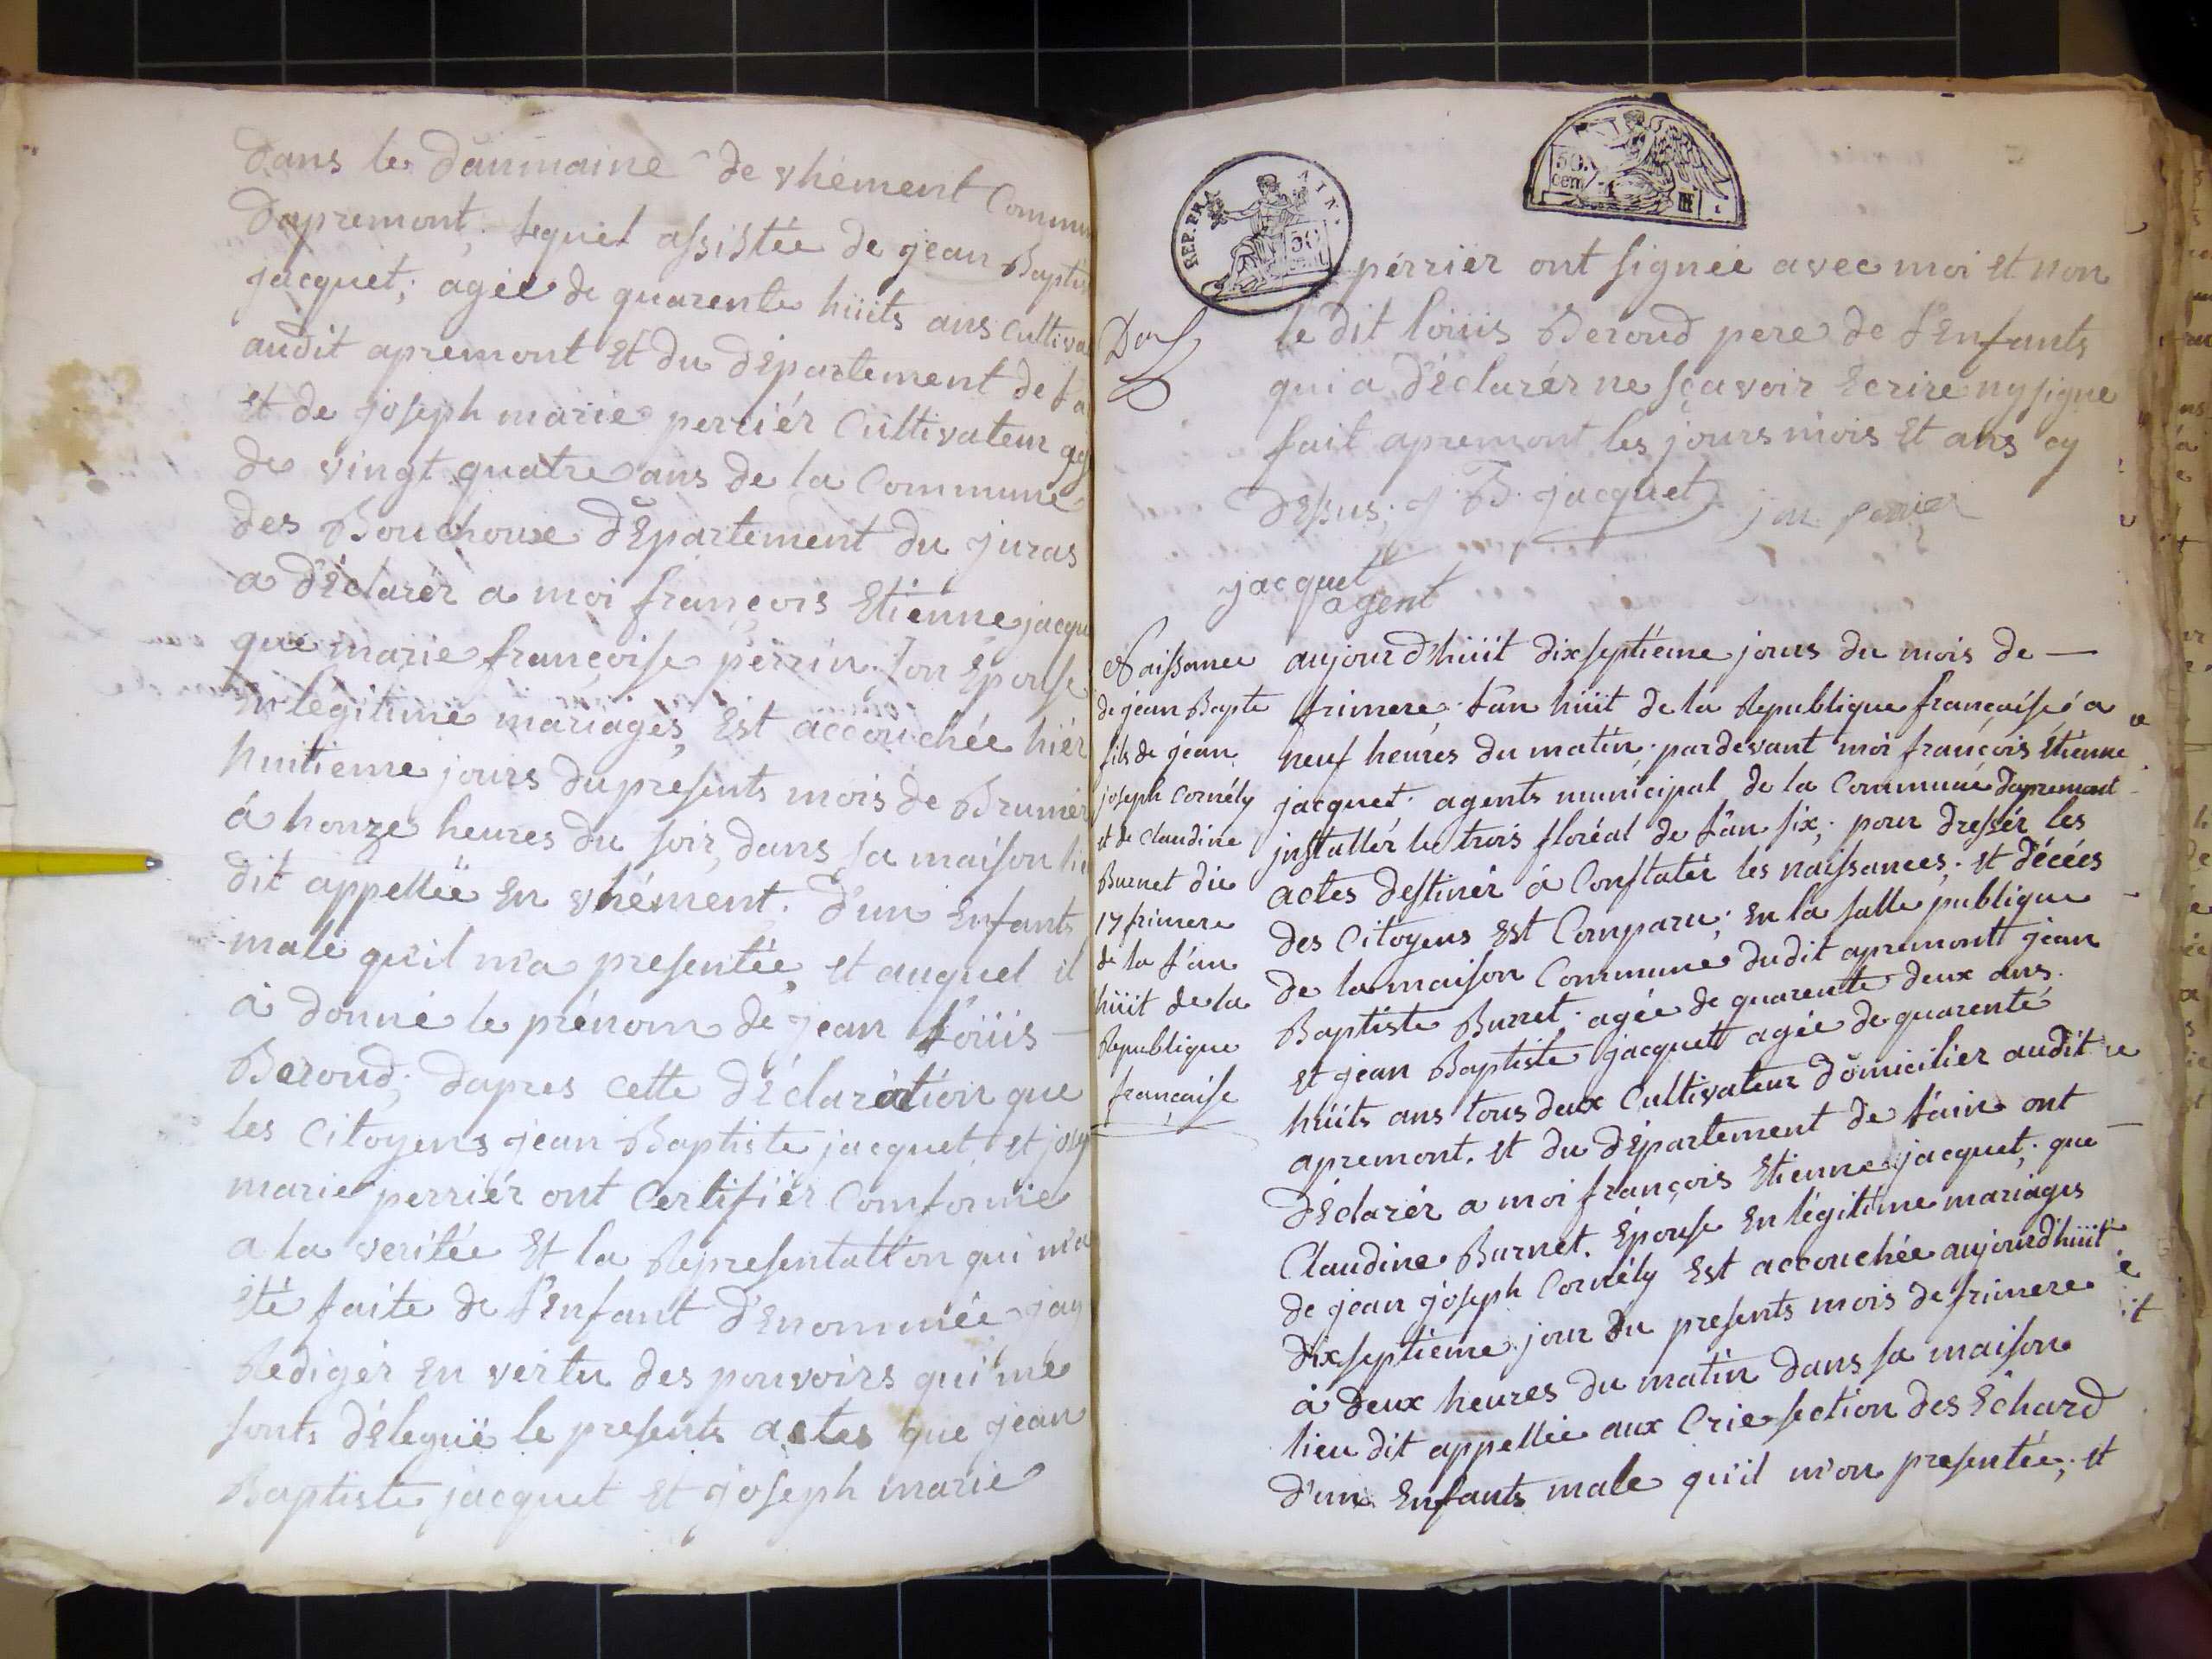 dans le daumaine de vhément Commun
dapremont; lequel assistée de jean Baptis
jacquet; agée de quarente hüits ans cultiva
audit apremont Et du département de l'a
et de joseph marie perriér Cultivateur ag
de vingt quatre ans de la Commune
des Bouchoux dEpartement du juras
a d'Éclarér a moi françois Etiénne jacqu
que marie françoise perrin son Epouse
En légitime mariages, Est accouchée hiér
huitieme jours du presents mois de Brumer
á honze heures du soir, dans sa maison lie
dit appelleé En vhément. d'un Enfants
male qu'il m'a presentée, et auquel il
à donné le prénom de jean Loüis
Beroud; dapres cette déclaration que
les Citoyens jean Baptiste jacquet, et jose
marie perriér ont Certifiér Comforme
a la veritée Et la Representation qui m'a
été faite de l'Enfant d'Enommée jay
Redigér En vertu des pouvoirs qui me
sonts déleguë le presents actes que jean
Baptiste jacquet Et joseph marie
REP. FRA AIN.
50
50.
cent.
périer ont signée avec moi et non
le dit loüis Beroud pere de l'Enfants
qui a d'Eclarér ne sçavoir Ecrire ny signe
fait apremont les jours mois Et ans cy
dessus. J. B. jacquet
jacquet
agent
Naissance
de jéan Bapte
fils de jéan
joseph Cornély
et de Claudine
Burnet die
17 frimere
de la l'an
hüit de la
Republique
française
aujourd'hüit dix septiéme jours du mois de —
frimere l'an hüit de la Republique française á
neuf heures du matin; pardevant moi françois étiénne
jacquet; agents municipal de la Commune dapremont
installér le trois floréal de l'an six; pour dressér les
actes destinér à Constatér les naissances; et décées
des Citoyens Est Comparu; En la salle publique
de la maison Commune dudit apremontt jean
Baptiste Burnet agée de quarente deux ans.
et jéan Baptiste jacquett agée de quarente
hüits ans tous deux Cultivateur domicilier audit
apremont. et du département de l'ain ont
d'Eclarér a moi françois Etienne jacquet; que
Claudine Burnet. Épouse En légitime mariages
de jean joseph Cornély Est accouchée aujourd'hüit
dix septiéme jour du presents mois de frimere
à deux heures du matin dans sa maison
lieu dit appellée aux Crie section des Echard
d'un Enfants male qu'il m'on presentée; et